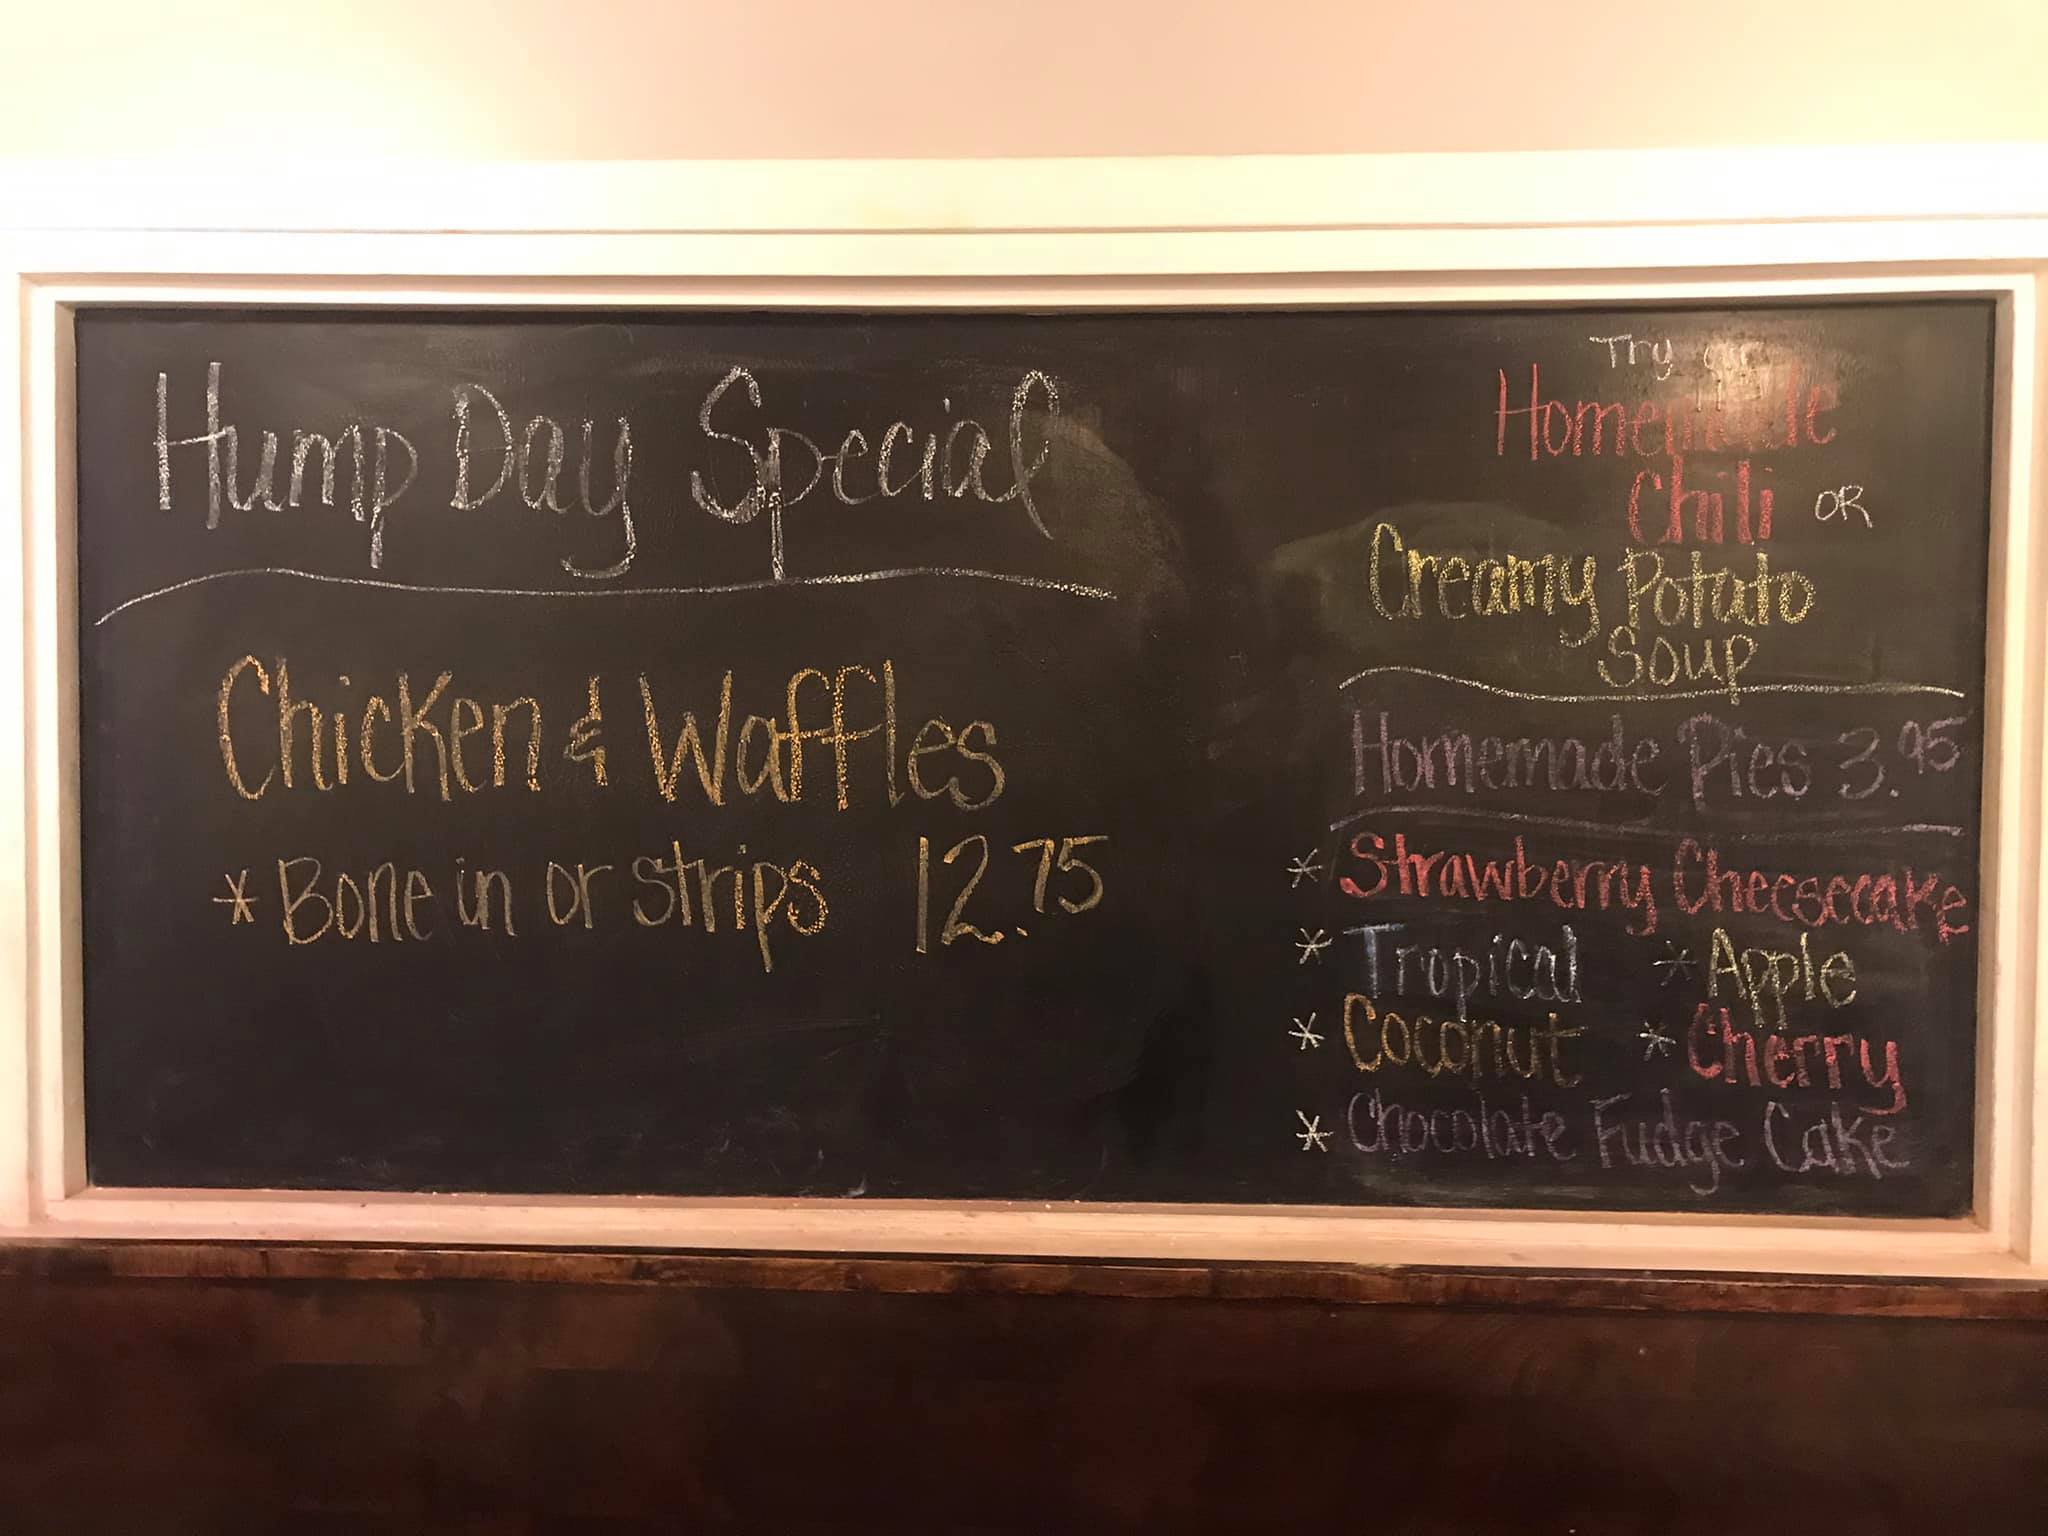 Hump Day Special
Chicken & Waffles
* Bone in or strips 12.75
Try our
Homemade
Chili OR
Creamy Potato
Soup
Homemade Pies 3.95
* Strawberry Cheesecake
* Tropical * Apple
* Coconut * Cherry
* Chocolate Fudge Cake